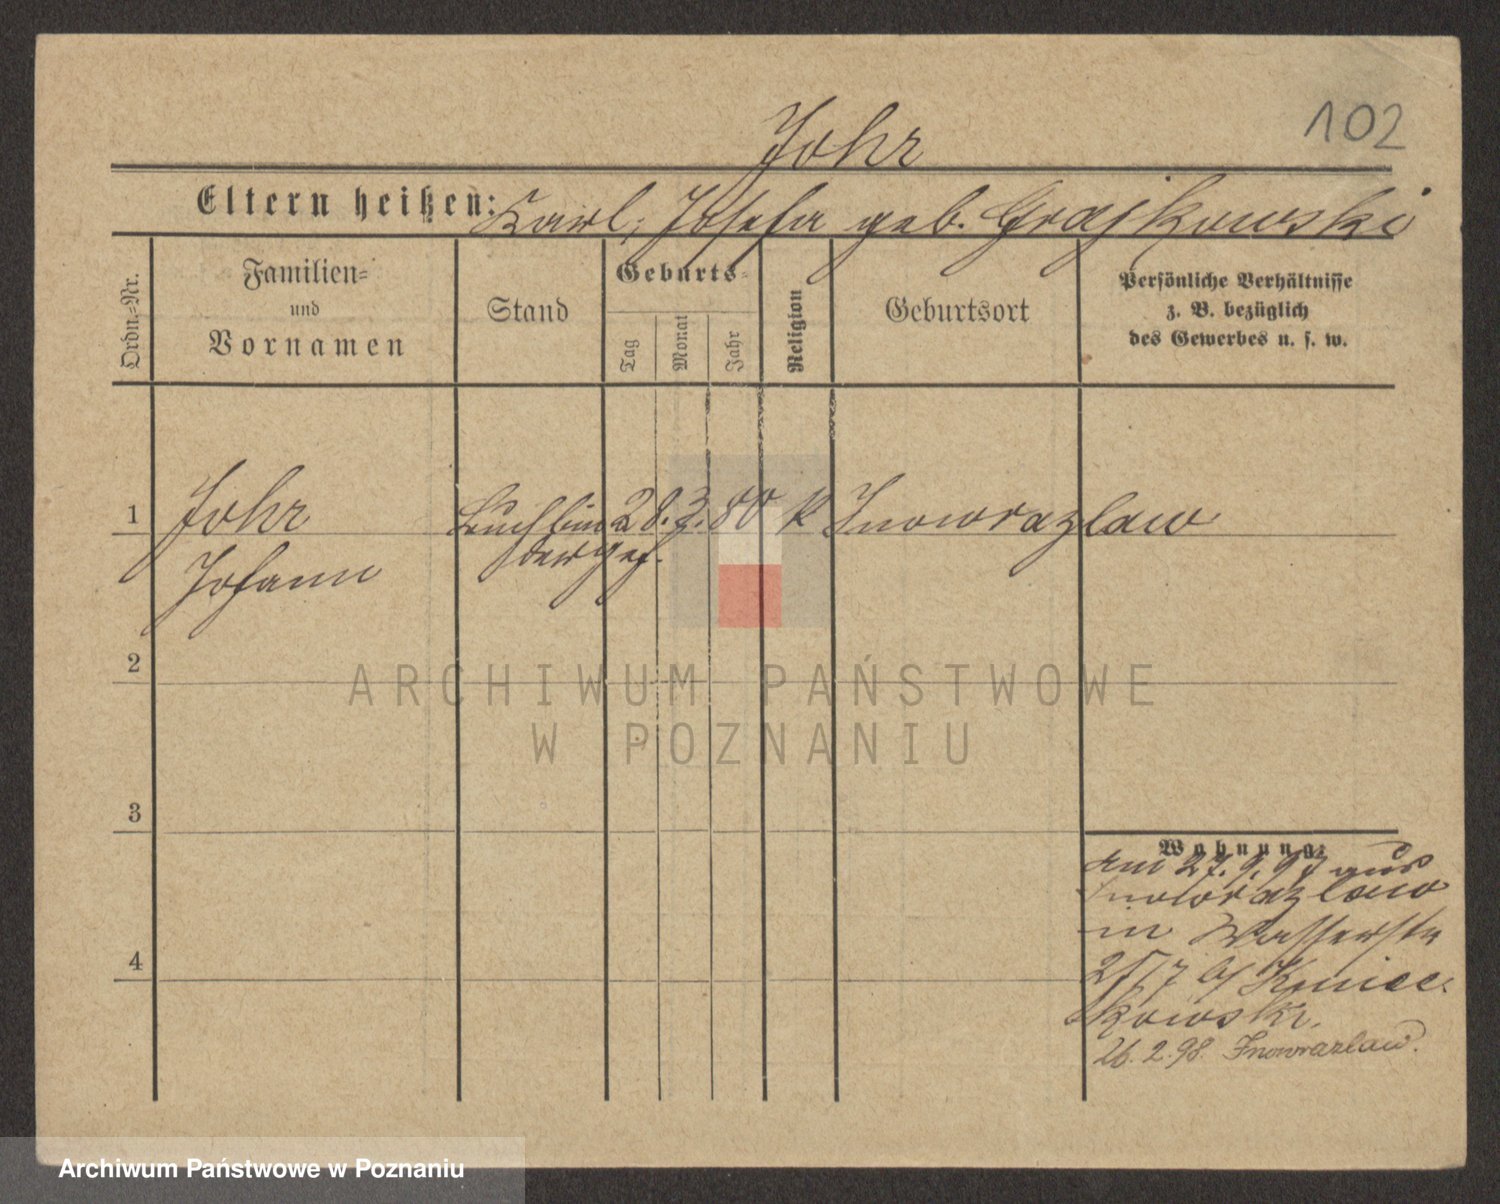 102
Johr
Eltern heißen: Karl, Josefa geb. Grajkowski
Ordn.-Nr.
Familien-
und
Vornamen
Stand
Geburts-
Tag
Monat
Jahr
Religion
Geburtsort
Persönliche Verhältnisse
z. B. bezüglich
des Gewerbes u. s. w.
1 Johr Buchbin 28. 3. 80 k Inowrazlaw
Johann derges.
2
ARCHIWUM PAŃSTWOWE
W POZNANIU
3
Wohnung:
am 27. 9. 97 aus
Inowrazlaw
in Wasserstr
4
kowski.
26. 2. 98. Inowrazlaw.
Archiwum Państwowe w Poznaniu